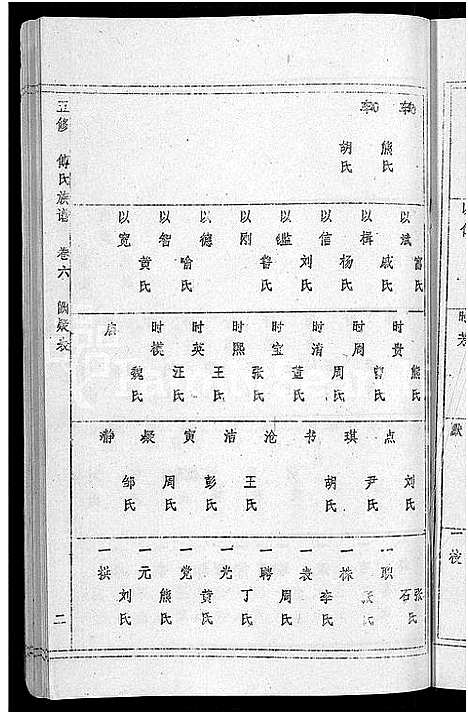 五修 傅氏族谱 卷六
二
李 李
熊氏 胡氏
以斌 以楫 以信 以鉴 以刚 以德 以智 以宽
富氏 戚氏 杨氏 刘氏 鲁氏 喻氏 黄氏
时贵 时周 时清 时宝 时熙 时英 时横
熊氏 曾氏 周氏 董氏 张氏 王氏 汪氏 魏氏
点 琪 书 沧 洁 寅 凝 静
刘氏 尹氏 胡氏 王氏 彭氏 周氏 邹氏
一职 一株 一表 一聘 一光 一党 一元 一棋
张氏 石氏 李氏 周氏 丁氏 黄氏 熊氏 刘氏
以信
时芳
默
一校